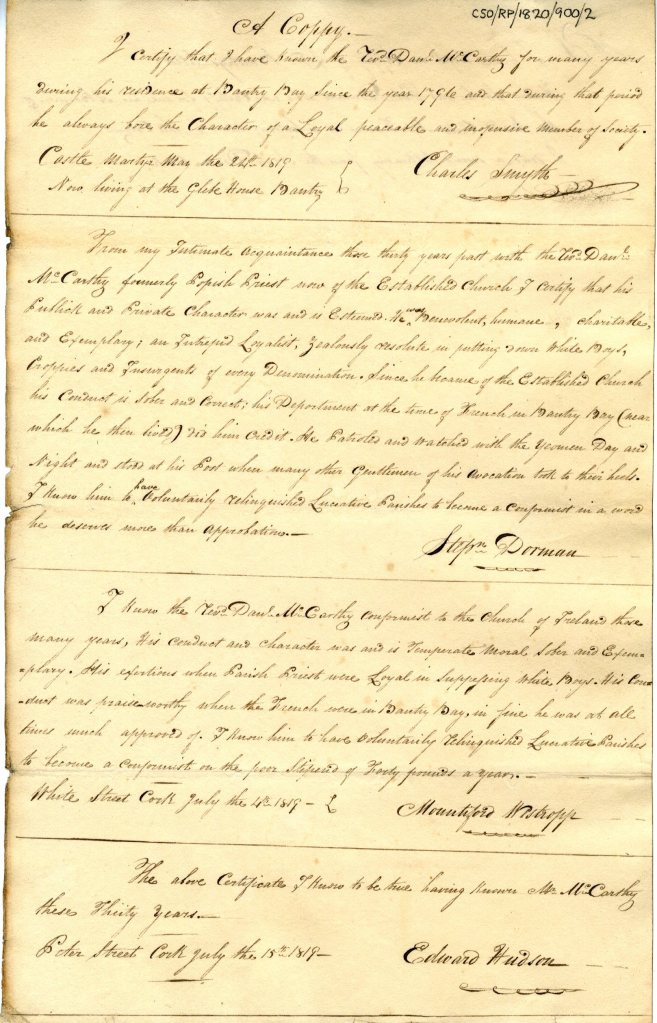 CSO/RP/1820/900/2
A Coppy.—
I Certify that I have Known the Revd. Danl. McCarthy for many years
during his residence at Bantry Bay Since the year 1796 and that during that period
he always bore the Character of a Loyal peaceable and inofensive member of Society.
Castle Martyr Mar. the 24th. 1819
Now living at the Glebe House Bantry
Charles Smyth
From my Intimate Acquaintance these thirty years past with the Revd. Danl.
McCarthy formerly Popish Priest now of the Established Church I Certify that his
Publick and Private Character was and is Esteemed. He was Benevolent, humane, charitable,
and Exemplary; an Intrepid Loyalist, Zealously resolute in putting down White Boys,
Croppies and Insurgents of every Denomination. Since he became of the Established Church
his Conduct is Sober and Correct; his Department at the time of French in Bantry Bay (near
which he then lived) did him Credit. He Patroled and Watched with the Yeomen Day and
Night and stood at his Post when many other Gentlemen of his Avocation took to their heels.
I Know him to have Voluntarily relinquished Lucrative Parishes to become a conformist in a word
he deserves more than Approbation.—
Stepn. Dorman
I Know the Revd. Danl. McCarthy Conformist to the Church of Ireland these
many years, His Conduct and Character was and is Temperate Moral Sober and Exem-
-plary. His exertions when Parish Priest were Loyal in Suppessing White Boys. His Con-
-duct was praise worthy when the French were in Bantry Bay, in fine he was at all
times much approved of. I Know him to have Voluntarily relinquished Lucrative Parishes
to become a conformist on the poor Stipend of Forty pounds a year.—
White Street Cork July the 4th. 1819—
Mountiford Westropp
The above Certificate I Know to be true having Known Mr. McCarthy
these Thirty Years.—
Peter Street Cork July the 15th. 1819—
Edward Hudson